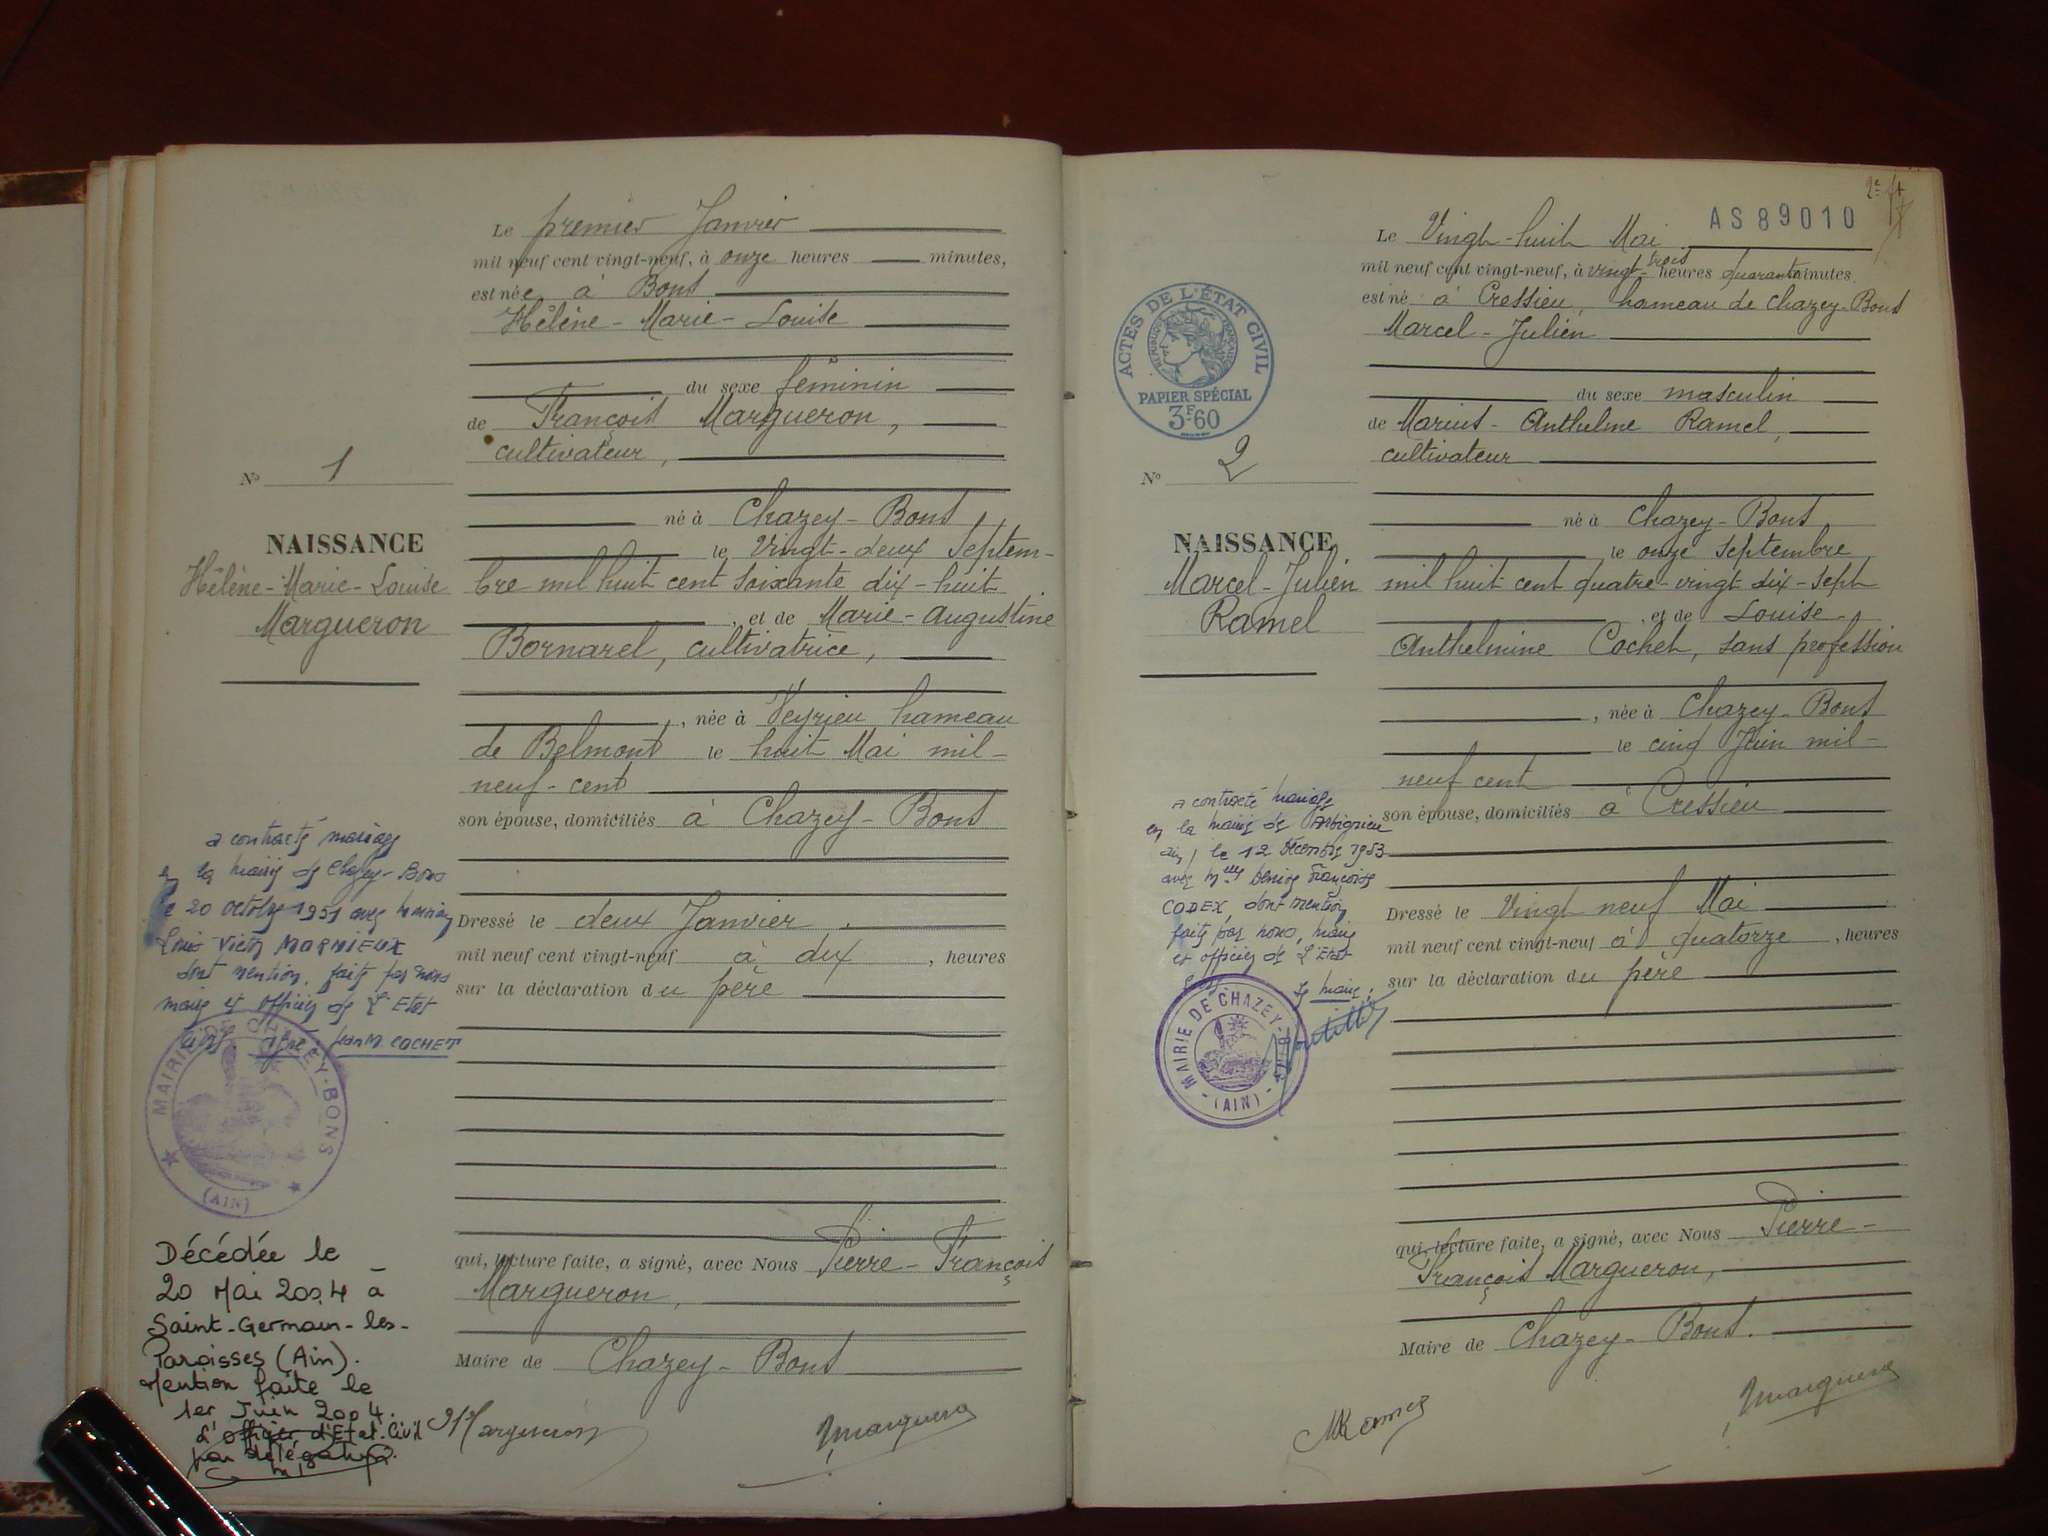 Le premier Janvier
mil neuf cent vingt-neuf, à onze heures minutes,
est née à Bons
Hélène-Marie-Louise
du sexe féminin
de François Margueron,
cultivateur,
né à Chazey-Bons,
le Vingt-deux Septem-
bre mil huit cent soixante dix-huit
et de Marie-Augustine
Bornarel, cultivatrice,
, née à Veyrieu hameau
de Belmont le huit Mai mil-
neuf-cent
son épouse, domiciliés à Chazey-Bons
Dressé le deux Janvier
mil neuf cent vingt-neuf à dix , heures
sur la déclaration du père
qui, lecture faite, a signé, avec Nous Pierre-François
Margueron,
Maire de Chazey-Bons
Margueron
Margueron
N° 1
NAISSANCE
Hélène-Marie-Louise
Margueron
a contracté mariage
en la mairie de Chazey-Bons
le 20 octobre 1951 avec
Louis Victor MORNIEUX
dont mention, faite par nous
maire et officier de l'Etat
civil. signé Jean M. COCHET
MAIRIE DE CHAZEY-BONS
(AIN)
Décédée le
20 Mai 2004 à
Saint-Germain-les-
Paroisses (Ain).
Mention faite le
1er Juin 2004.
L'officier d'Etat-Civil
par délégation.
2e
AS89010
Le Vingt-huit Mai
mil neuf cent vingt-neuf, à vingt-trois heures quarante minutes
est né à Cressieu, hameau de Chazey-Bons
Marcel-Julien
du sexe masculin
de Marius-Anthelme Ramel,
cultivateur
né à Chazey-Bons,
le onze septembre
mil huit cent quatre-vingt-dix-sept
et de Louise-
Anthelmine Cochet, sans profession
, née à Chazey-Bons
le cinq Juin mil-
neuf cent
son épouse, domiciliés à Cressieu
Dressé le Vingt neuf Mai
mil neuf cent vingt-neuf à quatorze , heures
sur la déclaration du père
qui, lecture faite, a signé, avec Nous Pierre-
François Margueron,
Maire de Chazey-Bons.
Margueron
ACTES DE L'ÉTAT CIVIL
RÉPUBLIQUE FRANÇAISE
PAPIER SPÉCIAL
3F60
N° 2
NAISSANCE
Marcel-Julien
Ramel
a contracté mariage
en la mairie de Arbignieu
ain, le 12 Décembre 1953
avec Melle Denise Françoise
CODEX, dont mention
faite par nous, maire
et officier de l'Etat
le maire:
MAIRIE DE CHAZEY-BONS
(AIN)